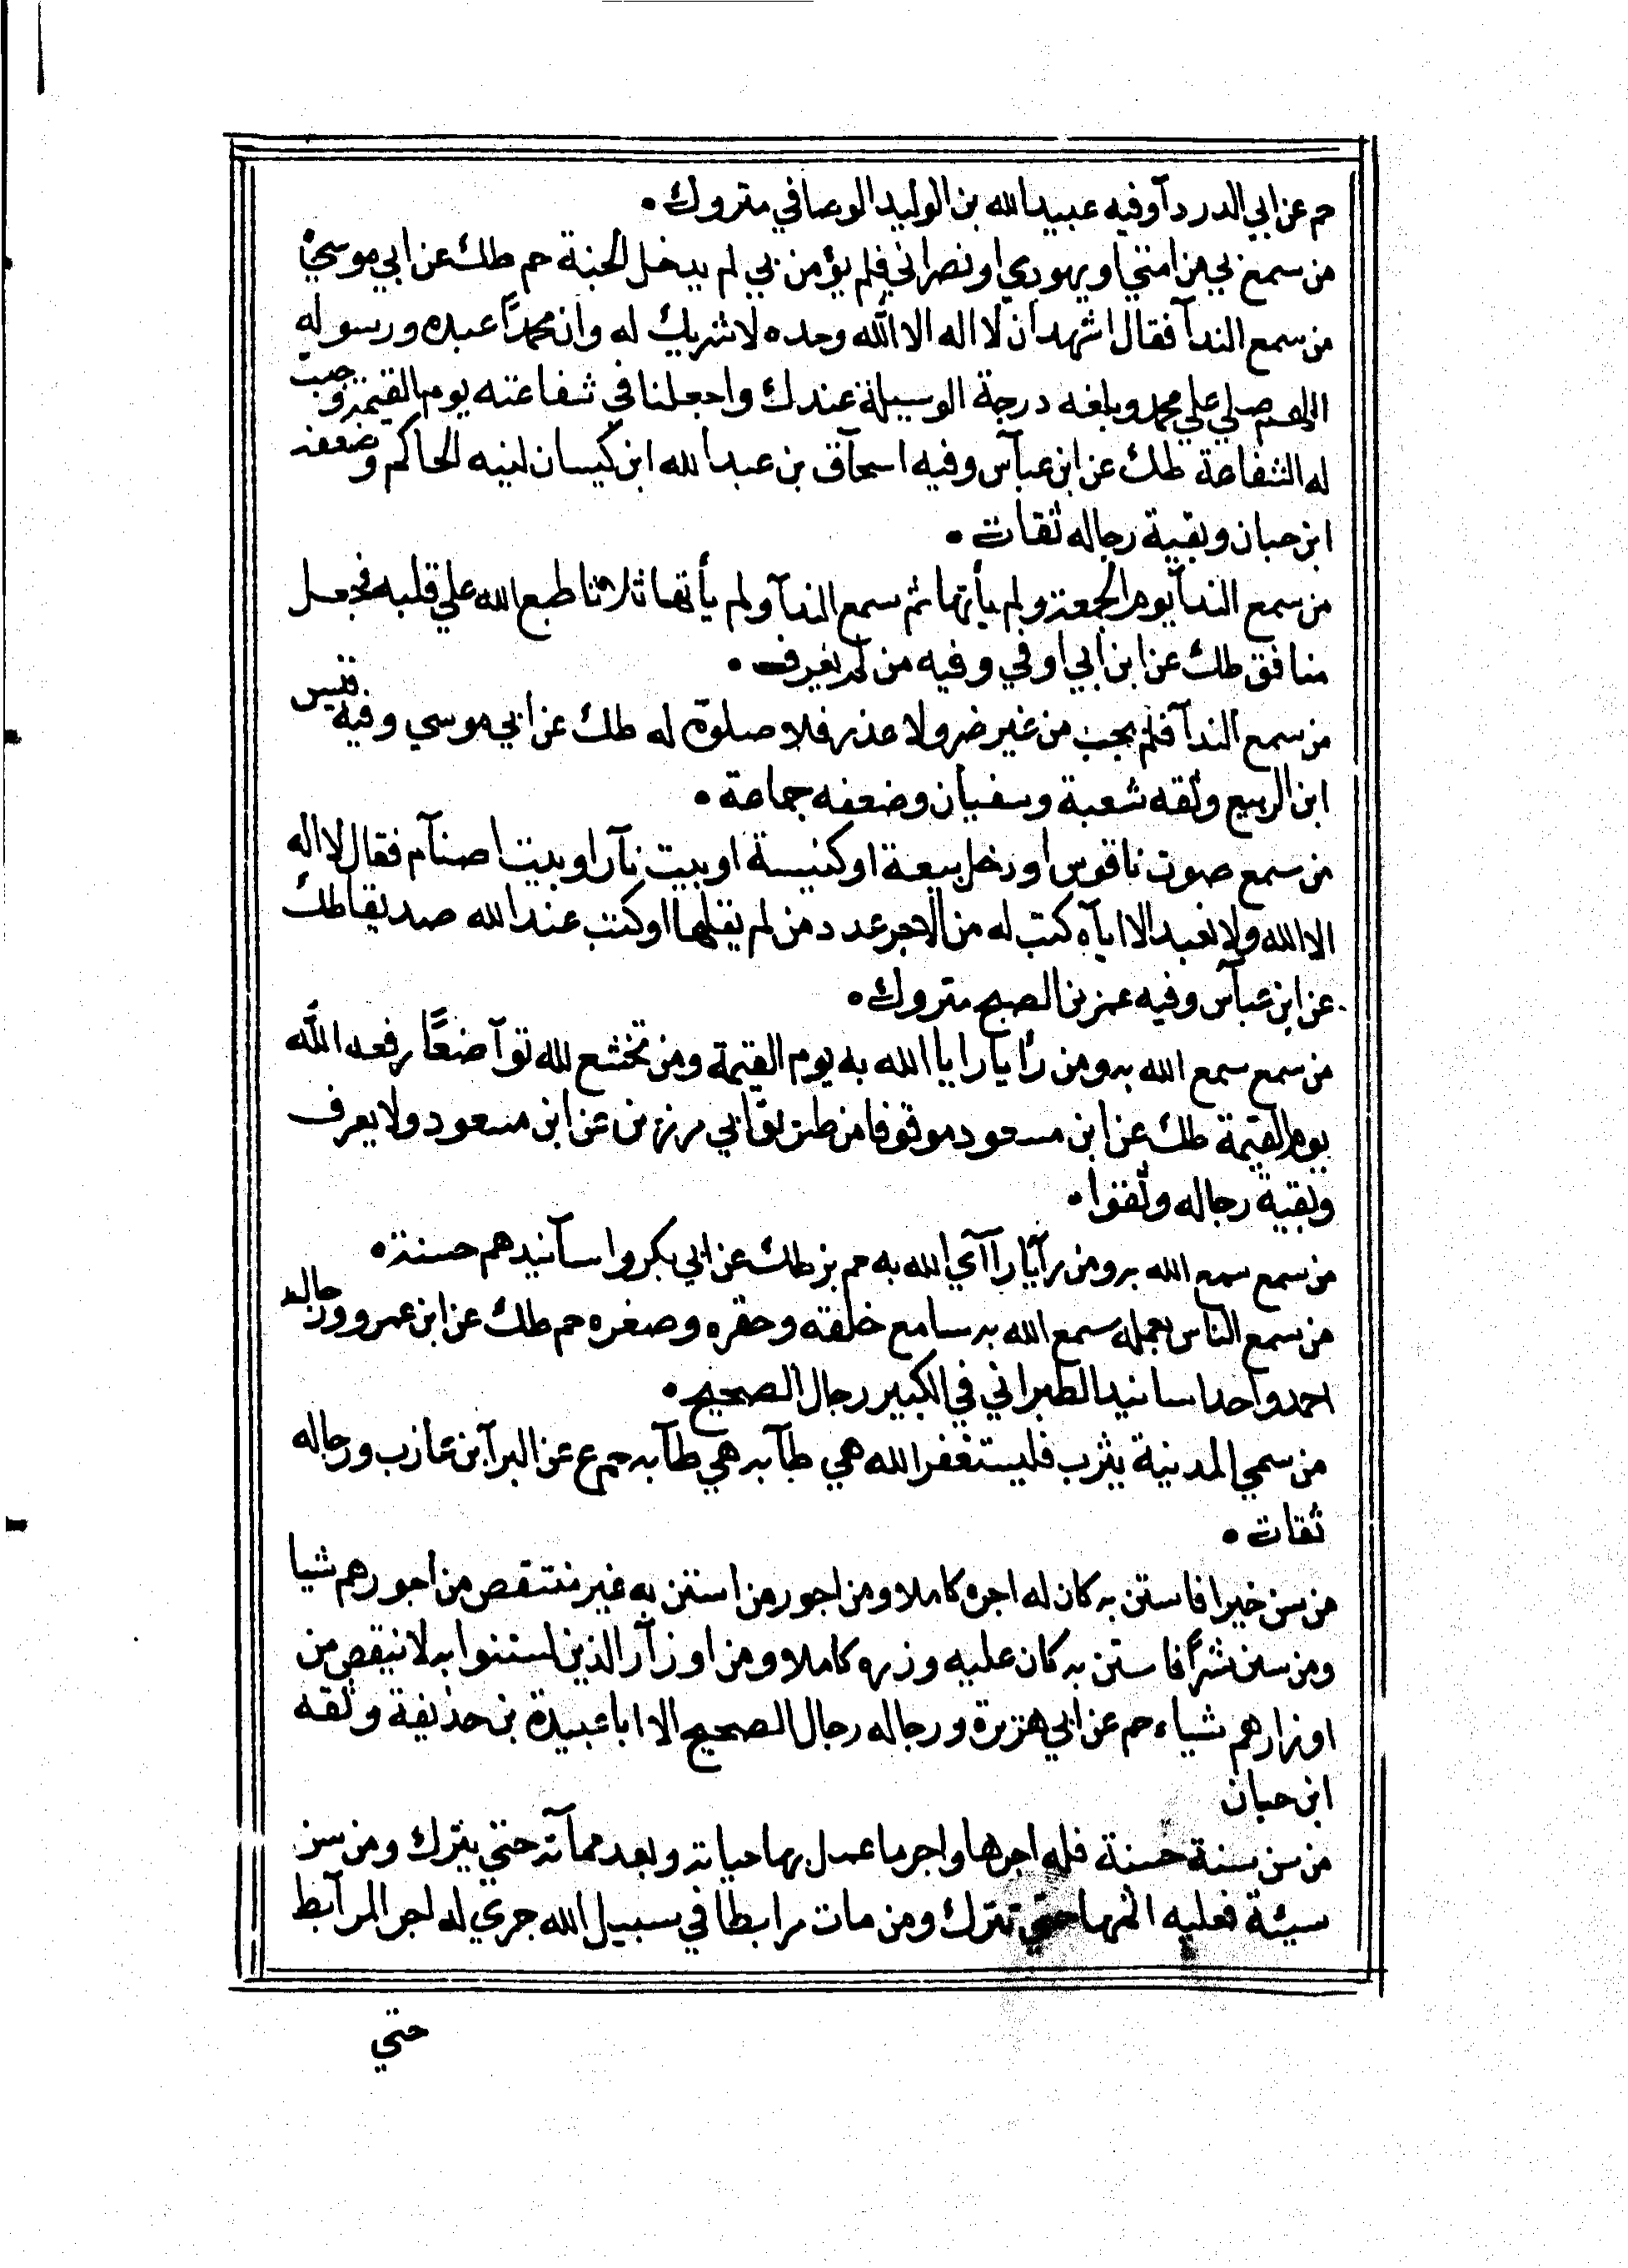 حم عن ابي الدردآ وفيه عبيدالله بن الوليد الوصافي متروك •
من سمع بي من امتي او يهودي او نصراني فلم يؤمن بي لم يدخل الجنة حم طك عن ابي موسي
من سمع الندآ فقال اشهد ان لا اله الا الله وحده لا شريك له وان محمدًا عبده ورسوله
اللهم صلي علي محمد وبلغه درجة الوسيلة عندك واجعلنا في شفاعته يوم القيمة وجبت
له الشفاعة طك عن ابن عبآس وفيه اسحآق بن عبدالله ابن كيسان لينه الحاكم وضعفه
ابن حبان وبقية رجاله ثقات •
من سمع الندآ يوم الجمعة ولم يأتها ثم سمع الندآ ولم يأتها ثلاثا طبع الله علي قلبه فجعل
منافق طك عن ابن ابي اوفي وفيه من لم يعرف •
من سمع الندآ فلم يجب من غير ضر ولا عذر فلا صلوة له طك عن ابي موسي وفيه قيس
ابن الربيع وثقه شعبة وسفيان وضعفه جماعة •
من سمع صوت ناقوس او دخل بيعة او كنيسة او بيت نآر او بيت اصنآم فقال لا اله
الا الله ولا نعبد الا اياه كتب له من الاجر عدد من لم يقلها او كتب عند الله صديقا طك
عن ابن عبآس وفيه عمر بن الصبح متروك •
من سمع سمع الله به ومن رأيا رايا الله به يوم القيمة ومن تخشع لله توآضعًا رفعه الله
يوم القيمة طك عن ابن مسعود موقوفا من طريق ابي رزين عن ابن مسعود ولا يعرف
وبقية رجاله وثقوا •
من سمع سمع الله به ومن رآيا رآآي الله به حم بز طك عن ابي بكر واسآنيدهم حسنة •
من سمع الناس بعمله سمع الله به سامع خلقه وحقره وصغره حم طك عن ابن عمرو ورجاله
احمد واحد اسانيد الطبراني في الكبير رجال الصحيح •
من سمي المدنية يثرب فليستغفر الله هي طآبه هي طآبه حم ع عن البرآ بن عازب ورجاله
ثقات •
من سن خيرا فاستن به كان له اجره كاملا ومن اجور من استن به غير منتقص من اجورهم شيا
ومن سن شرًا فاستن به كان عليه وزره كاملا ومن اوزآر الذين استنوا به لا ينقص من
اوزارهم شياء حم عن ابي هريرة ورجاله رجال الصحيح الا ابا عبيدة بن حذيفة وثقه
ابن حبان
من سن سنة حسنة فله اجرها واجر ما عمل بها حياته وبعد ممآته حتي يترك ومن سن
سيئة فعليه اثمها حتي تترك ومن مات مرابطا في سبيل الله جري له اجر المرآبط
حتي